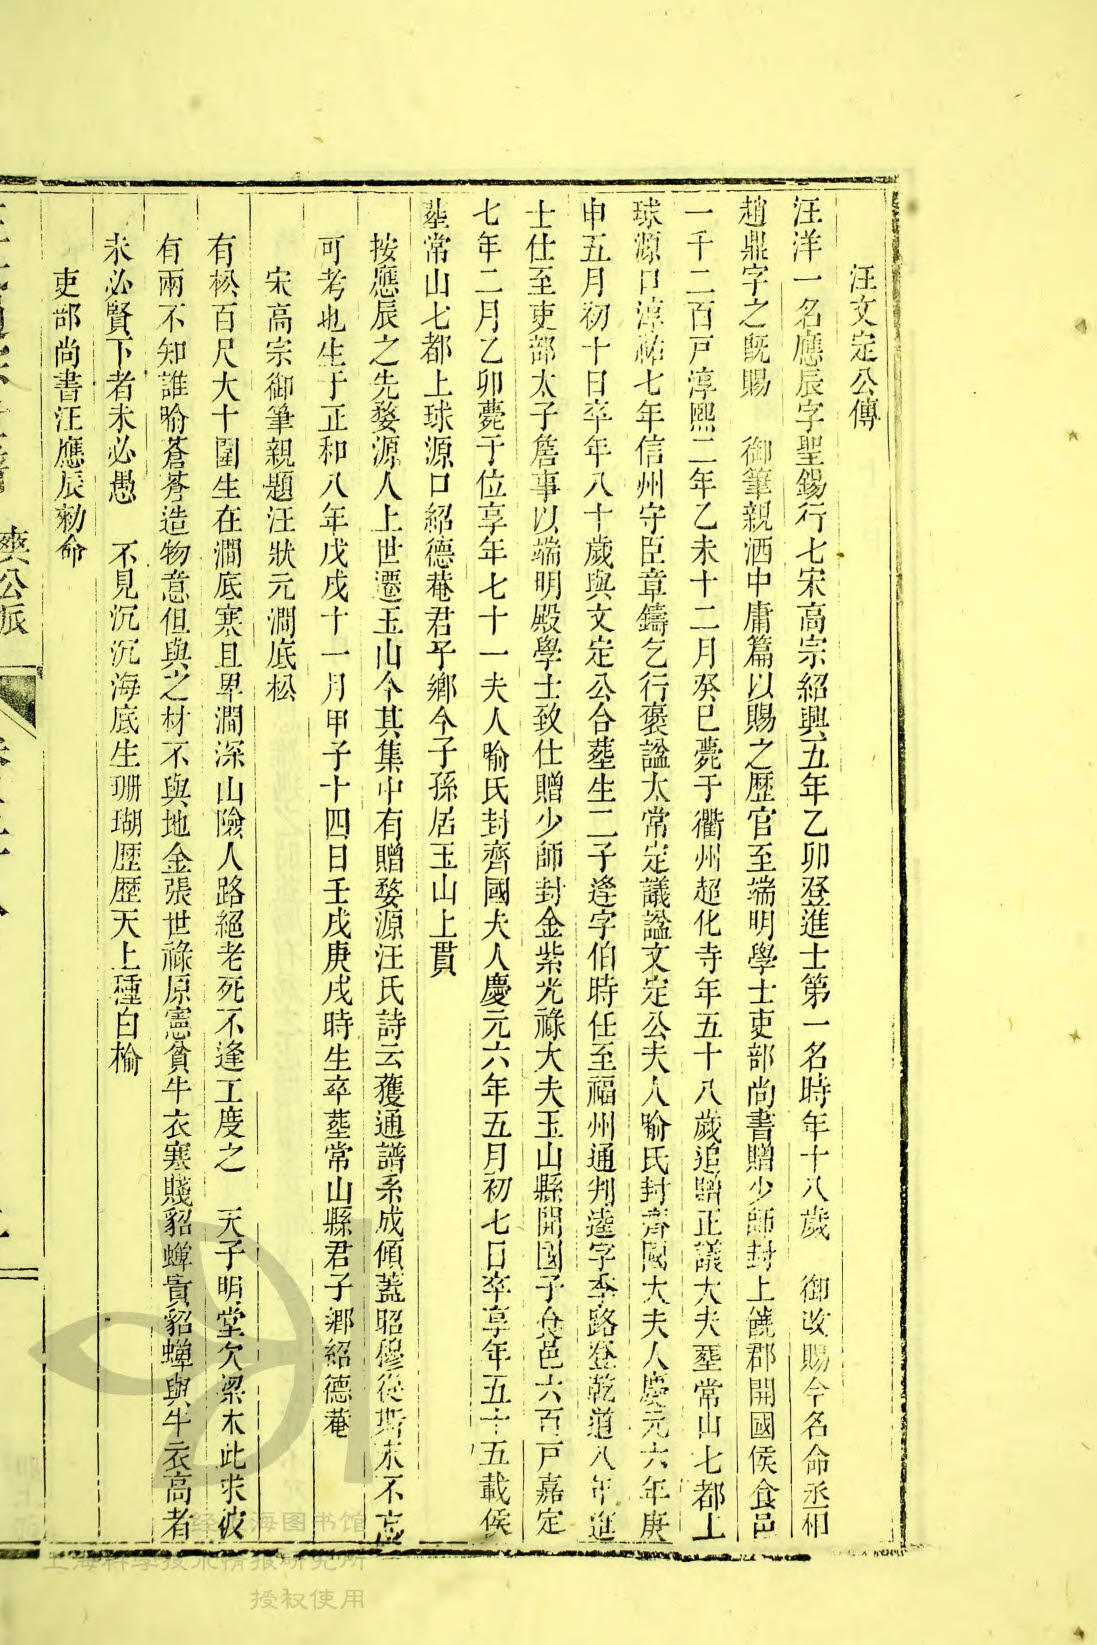 汪文定公傳
汪洋一名應辰字聖錫行七宋高宗紹興五年乙卯登進士第一名時年十八歲　御改賜今名命丞相
趙鼎字之既賜　御筆親洒中庸篇以賜之歷官至端明學士吏部尚書贈少師封上饒郡開國侯食邑
一千二百戸淳熙二年乙未十二月癸巳薨于衢州超化寺年五十八歲追贈正議大夫塟常山七都上
球源口淳祐七年信州守臣章鑄乞行褒謚太常定議謚文定公夫人喻氏封齊國大夫人慶元六年庚
申五月初十日卒年八十歲與文定公合塟生二子逢字伯時任至福州通判逵字季路登乾道八年進
士仕至吏部太子詹事以端明殿學士致仕贈少師封金紫光祿大夫玉山縣開國子食邑六百戸嘉定
七年二月乙卯薨于位享年七十一夫人喻氏封齊國夫人慶元六年五月初七日卒享年五十五載侯
塟常山七都上球源口紹德菴君子鄉今子孫居玉山上貫
按應辰之先婺源人上世遷玉山今其集中有贈婺源汪氏詩云獲通譜系成傾蓋昭穆從斯永不忘
可考也生于正和八年戊戌十一月甲子十四日壬戌庚戌時生卒塟常山縣君子鄉紹德菴
宋高宗御筆親題汪狀元澗底松
有松百尺大十圍生在澗底寒且卑澗深山險人路絕老死不逢工度之　天子明堂欠梁木此求彼
有兩不知誰喻蒼蒼造物意但與之材不與地金張世祿原憲貧牛衣寒賤貂蟬貴貂蟬與牛衣高者
未必賢下者未必愚　不見沉沉海底生珊瑚歷歷天上種白榆
吏部尚書汪應辰勑命
爽公派
经上海图书馆
上海科学技术情报研究所
授权使用